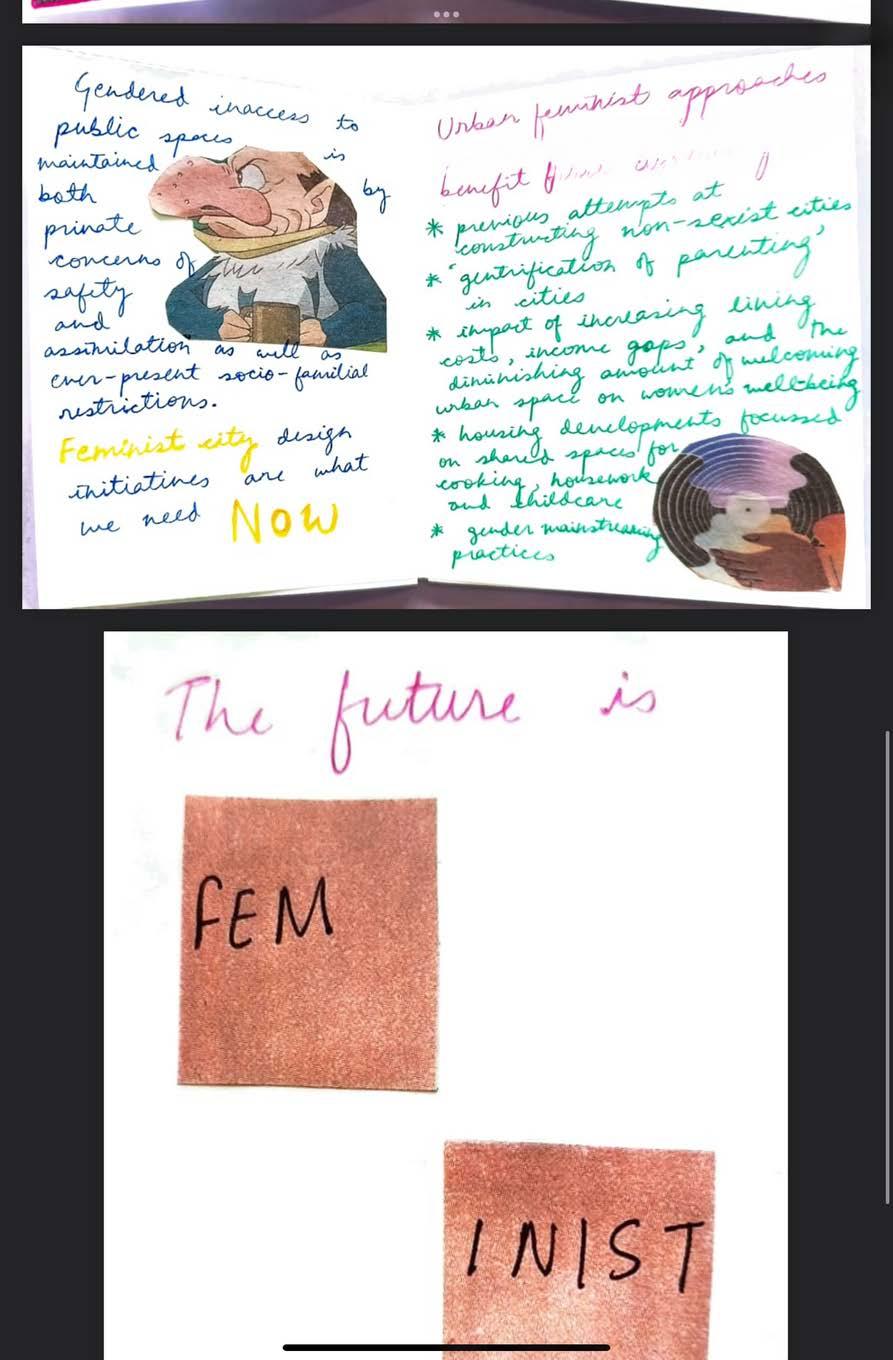 Gendered inaccess to
public spaces
maintained is
both by
private
concerns of
safety
and
assimilation as well as
ever-present socio-familial
restrictions.
Feminist city design
initiatives are what
we need NOW
Urban feminist approaches
benefit
* previous attempts at
constructing non-sexist cities
* 'gentrification of parenting'
in cities
* impact of increasing living
costs, income gaps, and the
diminishing amount of welcoming
urban space on women's well-being
* housing developments focussed
on shared spaces for
cooking, housework
and childcare
* gender mainstreaming
practices
The future is
FEM
INIST